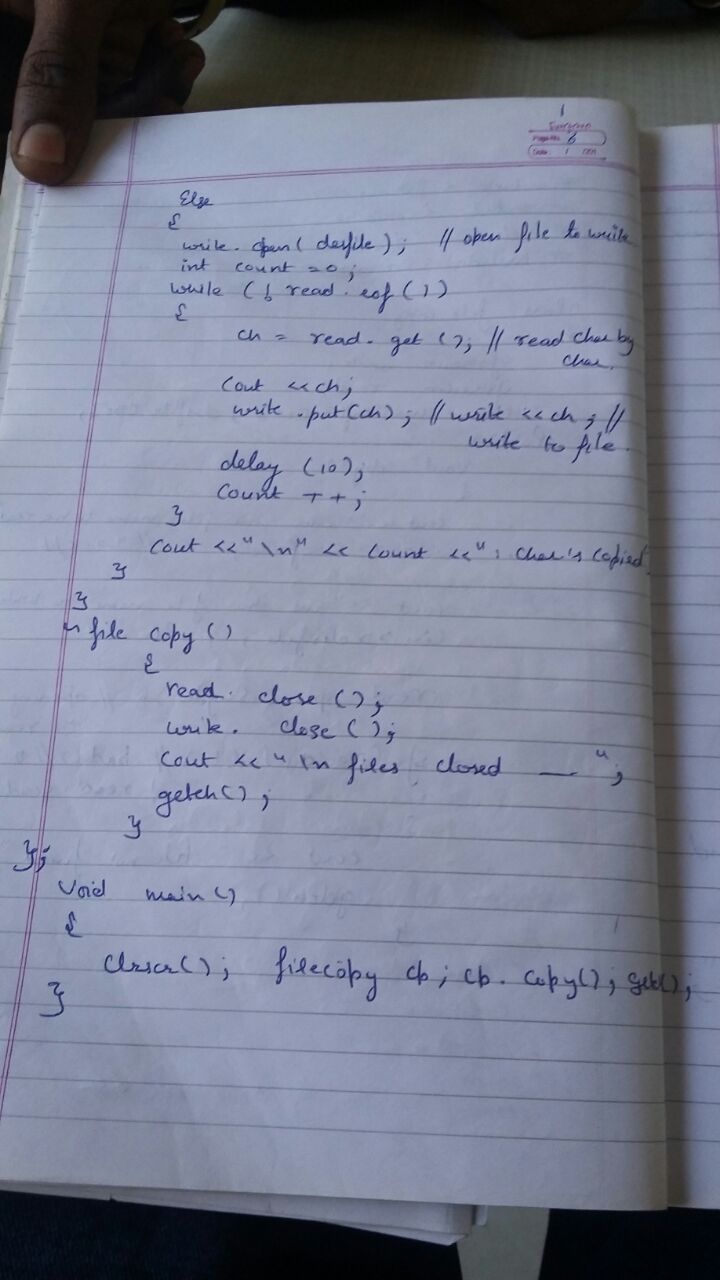 1
Page No. 6
Date: / /201
Else
{
write. open( desfile); // open file to write
int count =0;
while (! read. eof())
{
ch = read. get (); // read char by
char.
Cout <<ch;
write .put(ch); // write <<ch; //
write to file.
delay (10);
Count ++;
}
Cout <<"\n" << Count <<": Char's Copied
}
}
~ file copy ()
{
read. close ();
write. close ();
Cout << "\n files closed — ";
getch();
}
};
Void main()
{
Clrscr(); filecopy cp; cp. copy(); getch();
}